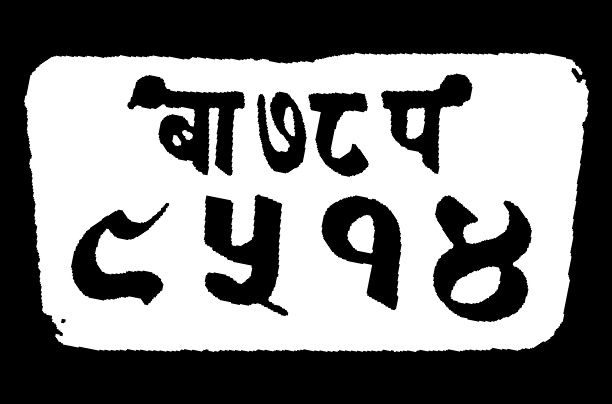 बा७८प
८५१४